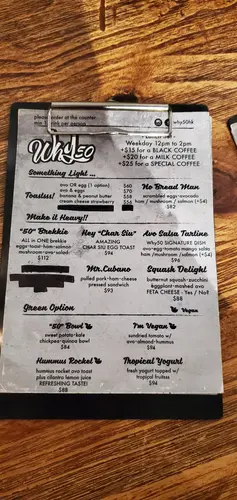 please order at the counter
min 1 drink per person
why50hk
Why50
Weekday 12pm to 2pm
+$15 for a BLACK COFFEE
+$20 for a MILK COFFEE
+$25 for a SPECIAL COFFEE
Something Light ...
Toastss!
avo OR egg (1 option) $60
avo & eggs $70
banana & peanut butter $58
cream cheese strawberry $56
No Bread Man
avocado-eggs-avocado
ham / mushroom / salmon (+$4)
$82
Make it Heavy!!
"50" Brekkie
ALL in ONE brekkie
egg-toast-ham-salmon
mushroom-avo-salad
$112
Hey "Char Siu"
AMAZING
CHAR SIU EGG TOAST
$96
Avo Salsa Tartine
Why50 SIGNATURE DISH
avo-egg-tomato mango salsa
ham / mushroom / salmon (+$4)
$96
Mr.Cubano
pulled pork-ham-cheese
pressed sandwich
$93
Squash Delight
butternut squash-zucchini
eggplant-dressed avo
FETA CHEESE - Yes / No?
$88
Green Option
Vegan
"50" Bowl
sweet potato-kale
chickpea-quinoa bowl
$84
I'm Vegan
sundried tomato w/
avo-almond-hummus
$94
Hummus Rocket
hummus rocket avo toast
plus cilantro lemon juice
REFRESHING TASTE!
$88
Tropical Yogurt
fresh yogurt topped w/
tropical fruitss
$94